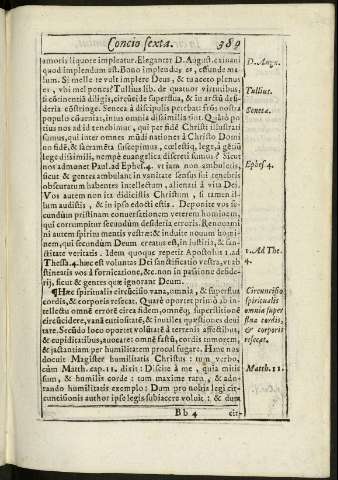 Concio sexta. 389
amoris liquore impleatur. Eleganter D. August. exinani
quod implendum est. Bono implendus es, effunde ma
lum. Si melle te vult implere Deus, & tu aceto plenus
es, vbi mel pones? Tullius lib. de quatuor virtutibus:
si cõtinentiã diligis, circũcide superflua, & in arctũ desi-
deria cõstringe. Seneca à discipulis petebat: frõs nostra
populo cõueniat: intus omnia dissimilia sint. Quãtò po
tius nos ad id tenebimur, qui per fidẽ Christi illustrati
sumus, qui inter omnes mũdi nationes à Christo Domi
no fidẽ, & sacramẽta suscepimus, cœlestiq; lege, à gẽtiũ
lege dissimili, nempè euangelica discreti sumus? Sicut
nos admonet Paul. ad Ephes. 4. vt iam non ambuletis,
sicut & gentes ambulant in vanitate sensus sui tenebris
obscuratum habentes intellectum, alienati à vita Dei.
Vos autem non ita didicistis Christum, si tamen il-
lum audistis, & in ipso edocti estis. Deponite vos se-
cundùm pristinam conuersationem veterem hominem,
qui corrumpitur secundùm desideria erroris. Renouami
ni autem spirim mentis vestræ: & induite nouum homi-
nem, qui secundùm Deum creatus est, in iustitia, & san-
ctitate veritatis. Idem quoque repetit Apostolus 1. ad
Thessa. 4. hæc est voluntas Dei sanctificatio vestra, vt ab
stineatis vos à fornicatione, &c. non in passione deside-
rij, sicut & gentes quæ ignorant Deum.
¶Hæc spiritualis circũcisio vana, omnia, & superflua
cordis, & corporis resecat. Quarè oportet primò ab in-
tellectu omnẽ errorẽ circa fidem, omnẽq; superstitionẽ
circũcidere, vanã curiositatẽ, & inutiles quæstiones deui
tare. Secũdo loco oportet volũtatẽ à terrenis affectibus,
& cupiditatibus, auocare: omnẽ fastũ, cordis tumorem,
& iactantiam per humilitatem procul fugare. Hanc nos
docuit Magister humilitatis Christus: tum verbo,
cùm Matth. cap. 11. dixit: Discite à me, quia mitis
sum, & humilis corde: tum maxime raro, & ado-
rando humilitatis exemplo: Dum pro nobis legi cir-
cuncisionis author ipse legis subiacere voluit: & dum
Bb 4 cir-
D. Augu.
Tullius.
Seneca.
Ephes. 4.
1. Ad The.
4.
Circuncisio
spiritualis
omnia super
flua cordis,
& corporis
resecat.
Matth. 11.